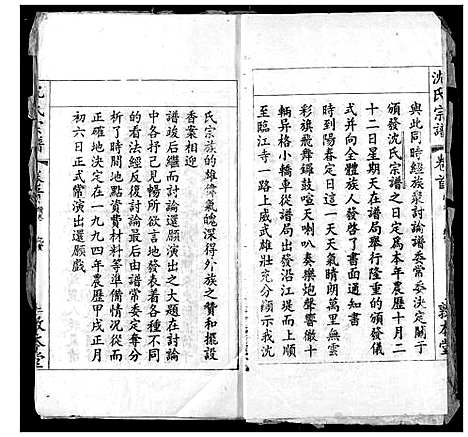 沈氏宗譜 卷首
與此同時經族衆討論譜委常委決定關于
頒發沈氏宗譜之日定爲本年農歷十月二
十二日星期天在譜局舉行隆重的頒發儀
式并向全體族人發了書面通知書
時到陽春定日這一天天氣晴朗萬里無雲
彩旗飛舞鑼鼓喧天喇叭奏樂炮聲響徹十
輛昇格小轎車從譜局出發沿江堤而上順
至臨江寺一路上威武雄壯充分顯示我沈
敦本堂
氏宗族的雄偉氣魄深得外族之贊和擺設
香案相迎
譜竣后繼而討論還願演出之大題在討論
中各抒己見暢所欲言地發表着各種不同
的看法經反復討論最后由譜常委定奪分
析了時間地點資費材料等準備情况從而
正確地決定在一九九四年農歷甲戌正月
初六日正式常演出還願戲
敦本堂